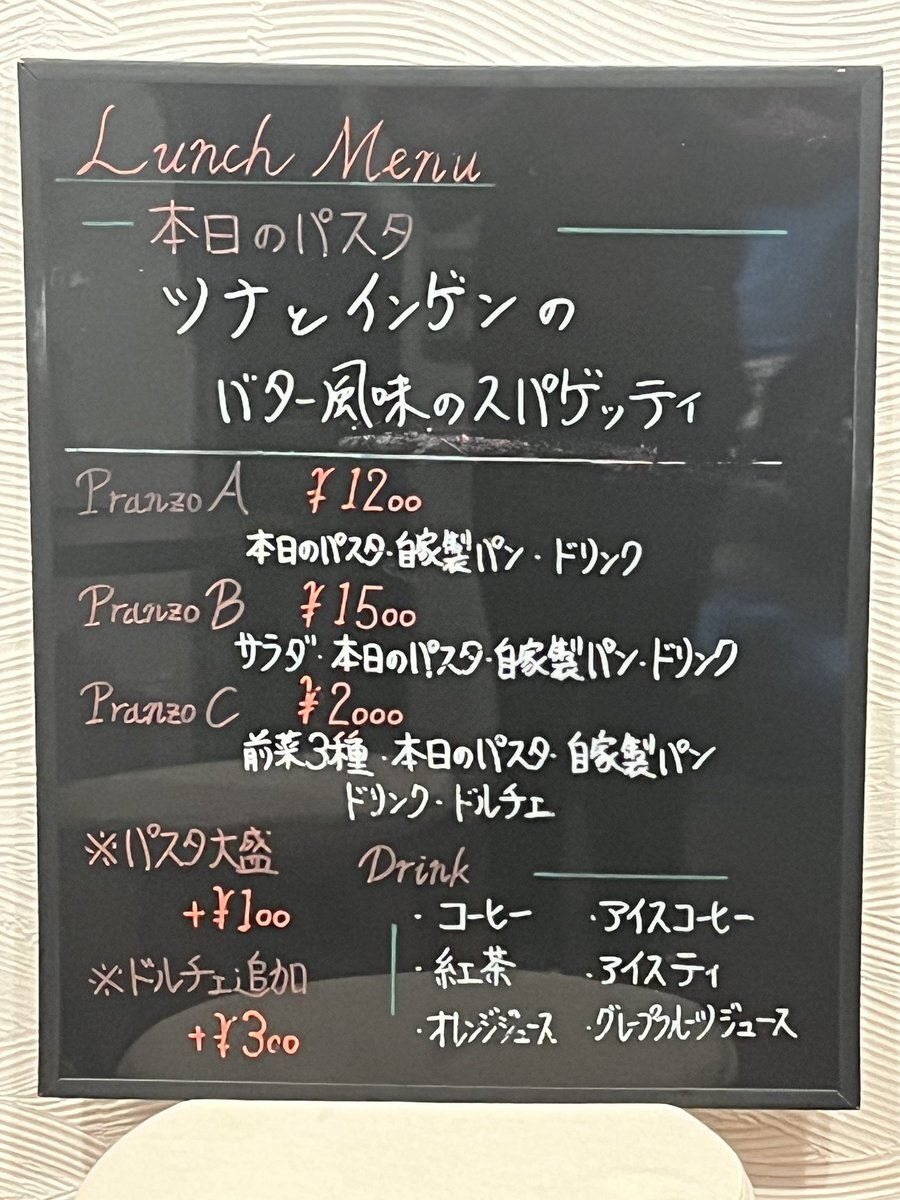 Lunch Menu
本日のパスタ
ツナとインゲンの
バター風味のスパゲッティ
Pranzo A ¥1200
本日のパスタ・自家製パン・ドリンク
Pranzo B ¥1500
サラダ・本日のパスタ・自家製パン・ドリンク
Pranzo C ¥2000
前菜3種・本日のパスタ・自家製パン
ドリンク・ドルチェ
※パスタ大盛
+¥100
※ドルチェ追加
+¥300
Drink
・コーヒー ・アイスコーヒー
・紅茶 ・アイスティ
・オレンジジュース ・グレープフルーツジュース